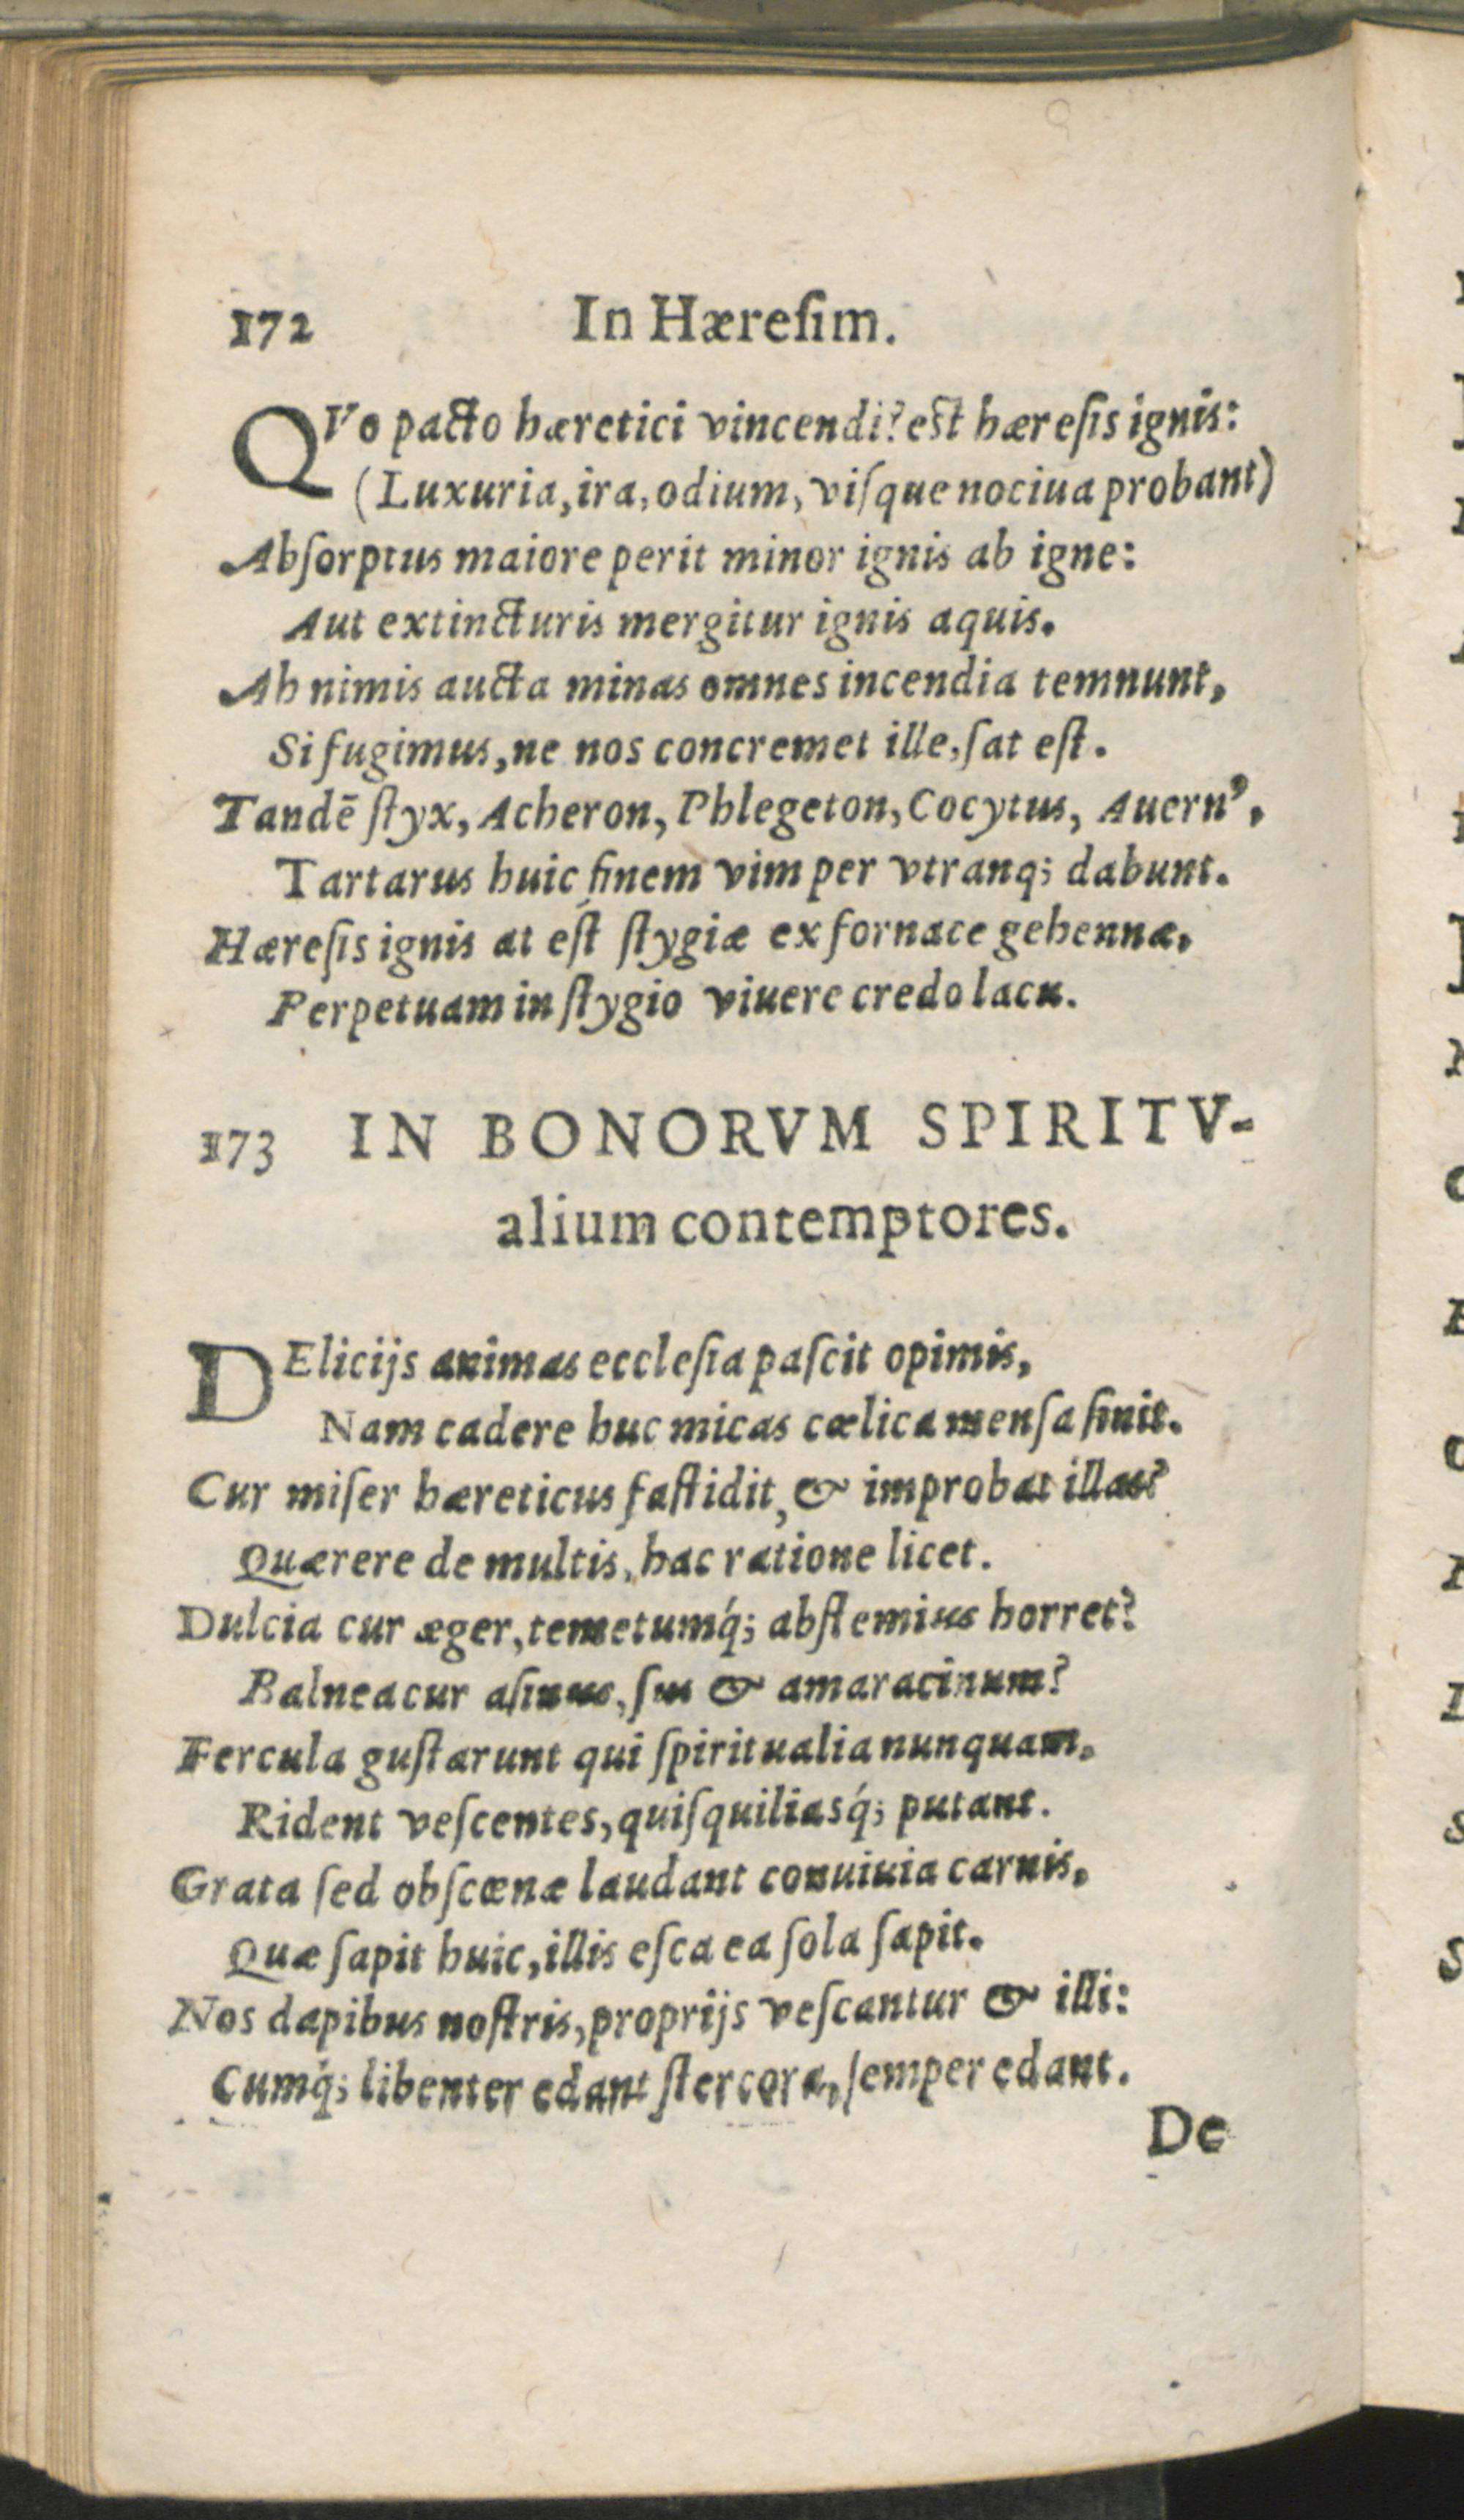 172 In Hæreſim.
QVo pacto hæretici vincendi? eſt hæreſis ignis:
(Luxuria, ira, odium, viſque nociua probant)
Abſorptus maiore perit minor ignis ab igne:
Aut extincturis mergitur ignis aquis.
Ah nimis aucta minas omnes incendia temnunt,
Si fugimus, ne nos concremet ille, ſat eſt.
Tandē ſtyx, Acheron, Phlegeton, Cocytus, Auernꝰ,
Tartarus huic finem vim per vtranq; dabunt.
Hæreſis ignis at eſt ſtygiæ ex fornace gehennæ,
Perpetuam in ſtygio viuere credo lacu.
173 IN BONORVM SPIRITV-
alium contemptores.
DElicijs animas eccleſia paſcit opimis,
Nam cadere huc micas cælica menſa ſinit.
Cur miſer hæreticus faſtidit, & improbat illas?
Quærere de multis, hac ratione licet.
Dulcia cur æger, temetumq́; abſtemius horret?
Balnea cur aſinus, ſus & amaracinum?
Fercula guſtarunt qui ſpiritualia nunquam,
Rident veſcentes, quiſquiliasq́; putant.
Grata ſed obſcœnæ laudant conuiuia carnis,
Quæ ſapit huic, illis eſca ea ſola ſapit.
Nos dapibus noſtris, proprijs veſcantur & illi:
Cumq́; libenter edant ſtercora, ſemper edant.
De